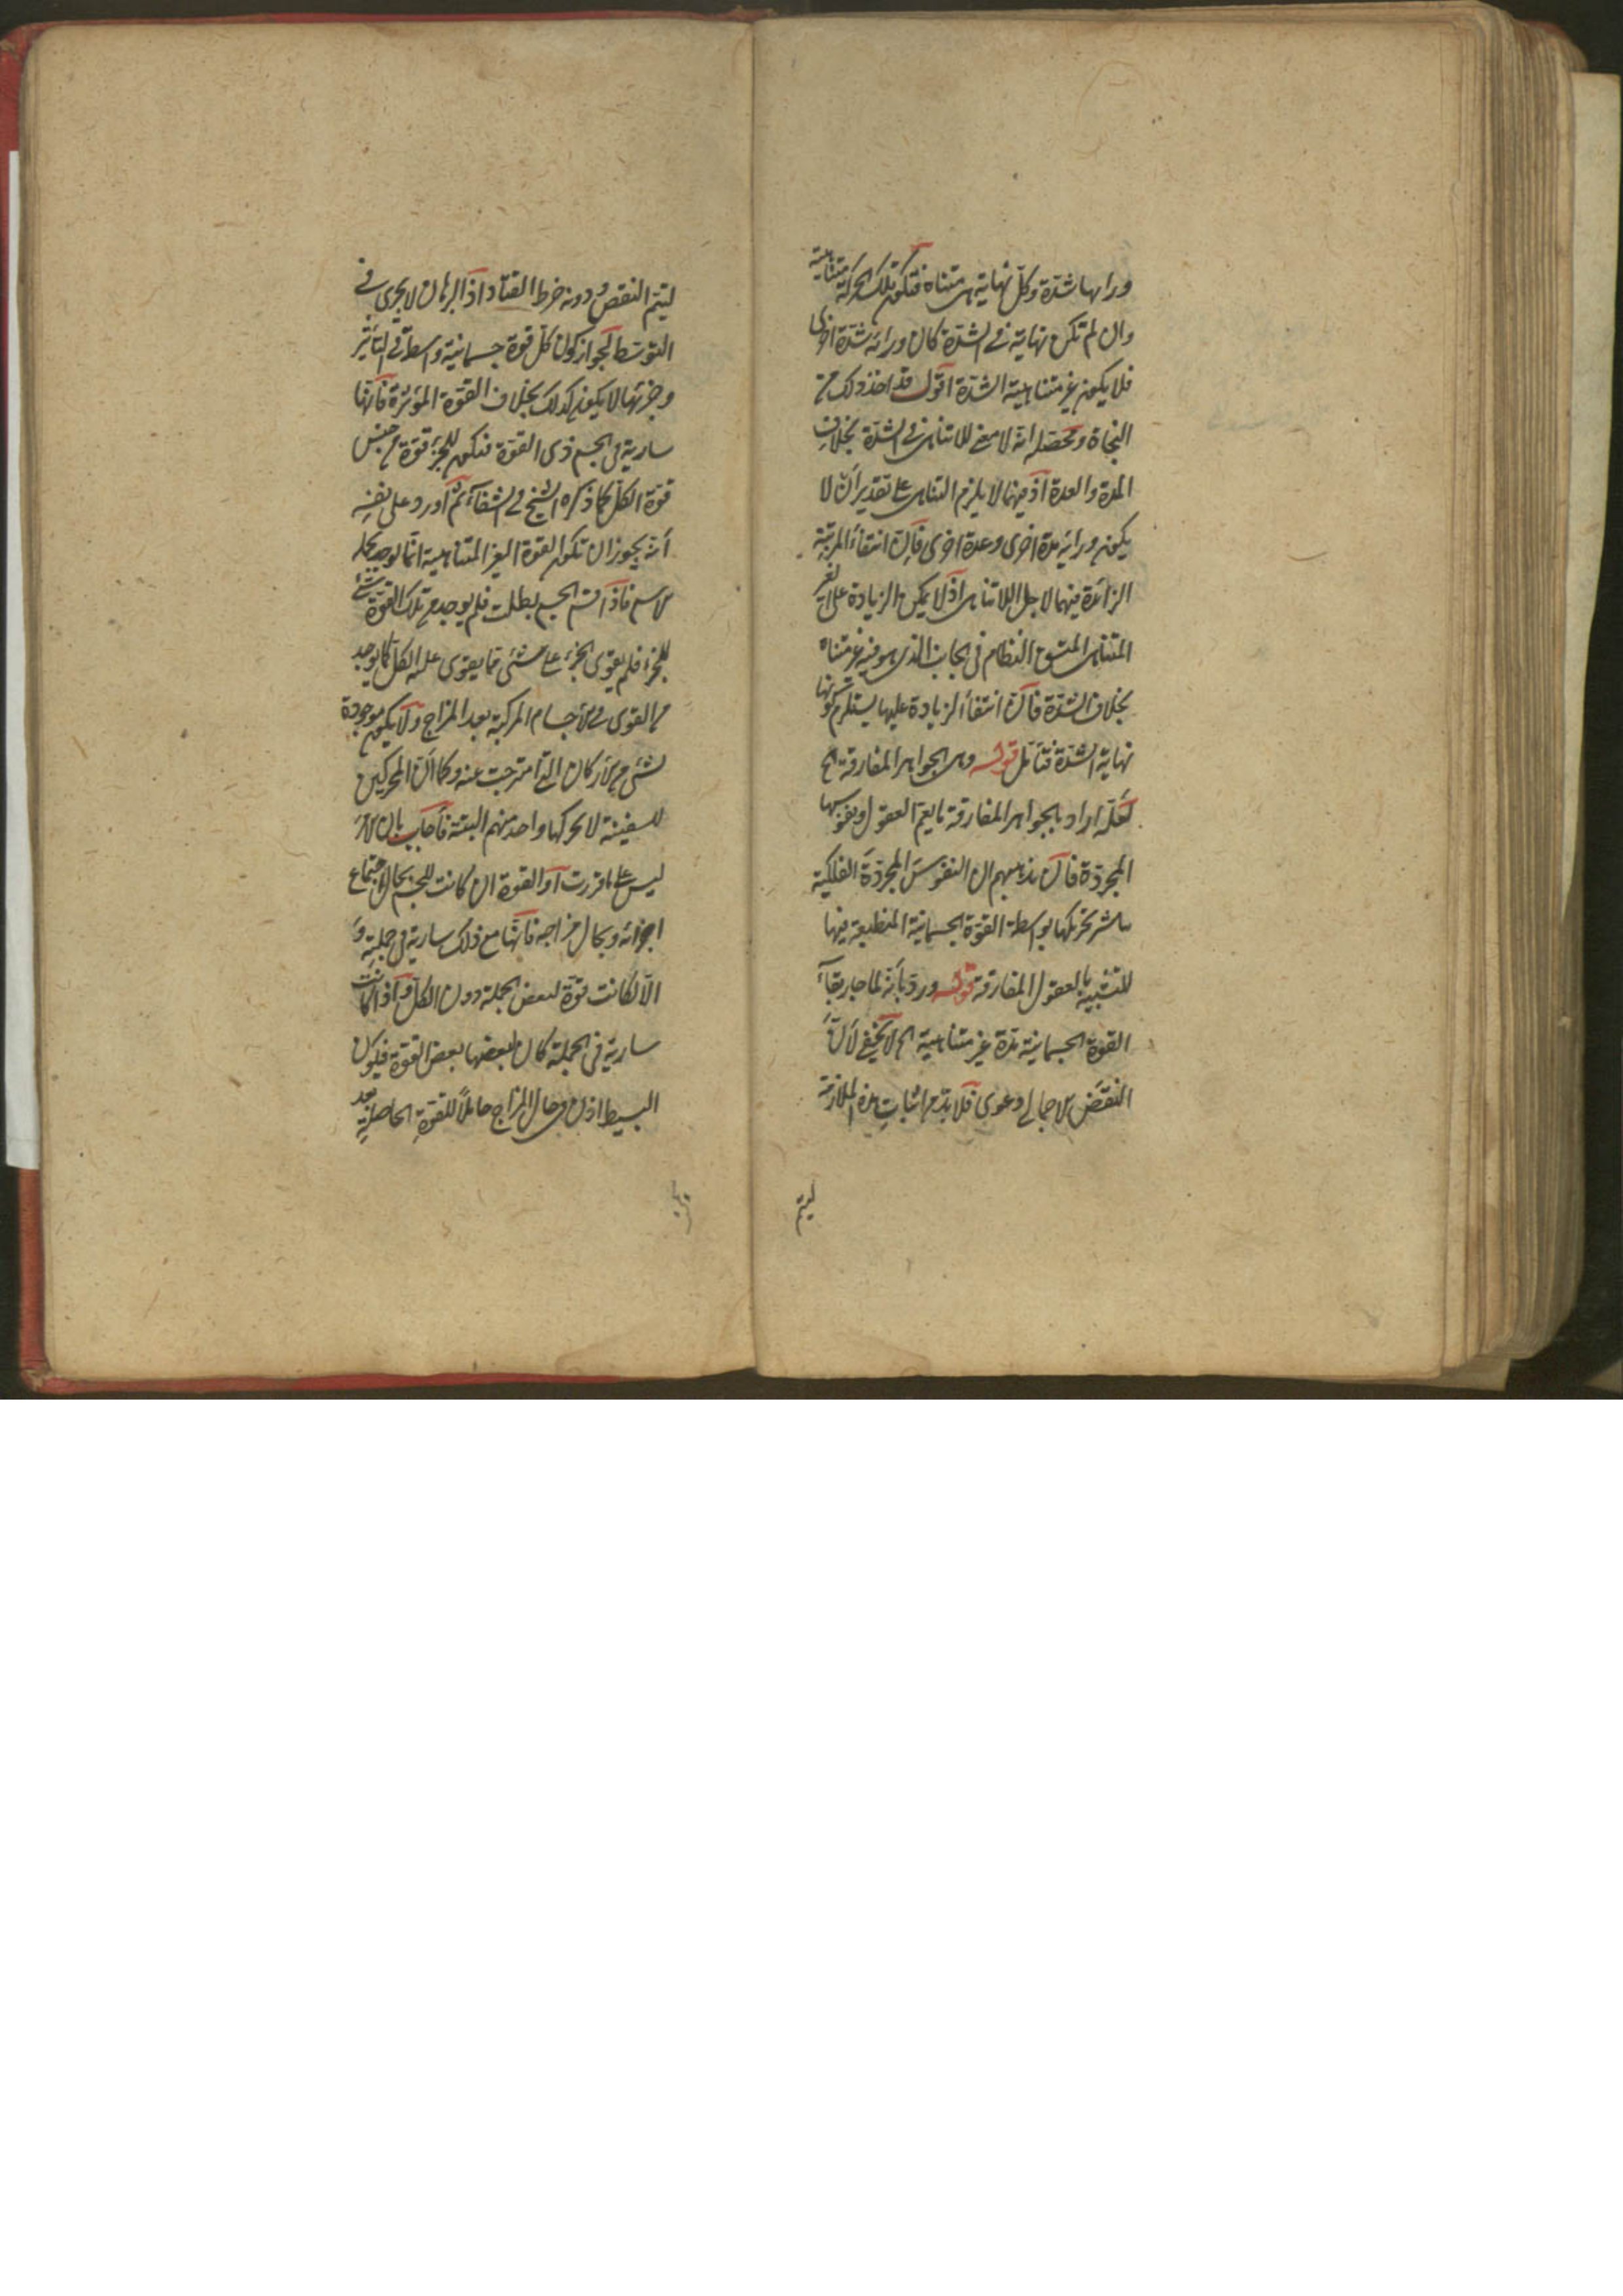 وراءها شدة وكل نهاية هي متناه فتكون تلك الحركة متناهية
وان لم تكن نهاية في الشدة كان ورائه شدة اخرى
فلا يكون غير متناهية الشدة اقول قد اخذ ذلك من
النجاة ومحصله انه لا معنى للاتناهي في الشدة بخلاف
المدة والعدة اذ فيهما لا يلزم التناهي على تقدير ان لا
يكون ورائه مدة اخرى وعدة اخرى فان انتفاء المرتبة
الزائدة فيهما لاجل اللاتناهي اذ لا يمكن الزيادة على الغير
المتناهي المتسق النظام في الجانب الذي هو فيه غير متناه
بخلاف الشدة فان انتفاء الزيادة عليها يستلزم كونها
نهاية الشدة فتأمل قوله وهي الجواهر المفارقة الخ
لعله اراد بالجواهر المفارقة ما يعم العقول ونفوسها
المجردة فان مذهبهم ان النفوس المجردة الفلكية
مباشر تحريكها بواسطة القوة الجسمانية المنطبعة فيها
للتشبيه بالعقول المفارقة قوله ورد بأنه لما جاز بقاء
القوة الجسمانية مدة غير متناهية الخ لا يخفى لأن
النقض الاجمالي دعوى فلا بد من اثبات هذه الملازمة
ليتم
ليتم النقض ودونه خرط القتاد اذ البرهان لا يجري في
التوسط لجواز كون كل قوة جسمانية واسطة في التأثير
وجزئها لا يكون كذلك بخلاف القوة المؤثرة فانها
سارية في الجسم ذي القوة فتكون للجزء قوة من جنس
قوة الكل كما ذكره الشيخ في الشفاء ثم اورد على نفسه
أنه يجوز ان تكون القوة الغير المتناهية انما توجد بكله
الاسم فاذا قسم الجسم بطلت فلم يوجد من تلك القوة شيء
للجزء فلم يقوى الجزء على شئ مما يقوى عليه الكل كما يوجد
من القوى في الأجسام المركبة بعد المزاج ولا يكون موجودة
لشئ من الأركان التي امتزجت عنه وكما أن المحركين
للسفينة لا يحركها واحد منهم البتة فأجاب بان الامر
ليس على ما قررت أو القوة ان كانت للجسم بحال اجتماع
اجزائه وبحال مزاجه فانها مع ذلك سارية في جملته و
الا لكانت قوة لبعض الجملة دون الكل واذا كانت
سارية في الجملة كان لبعضها بعض القوة فيكون
البسيط اذن في حال المزاج حاملا للقوة الحاصلة بعد